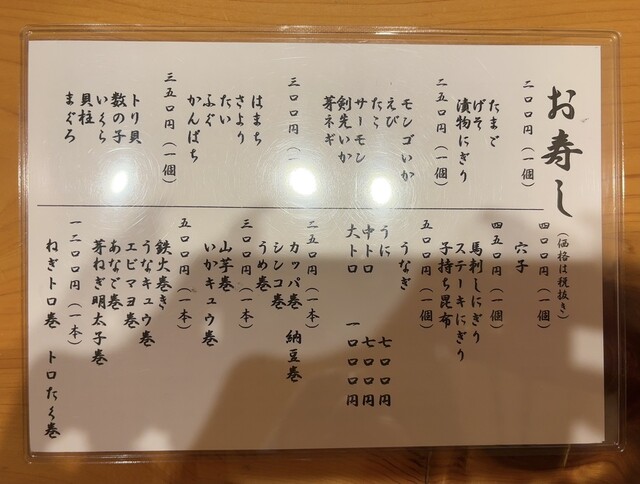 お寿し
(価格は税抜き)
二〇〇円(一個)
たまご
げそ
漬物にぎり
二五〇円(一個)
モンゴいか
えび
たこ
サーモン
剣先いか
芽ネギ
三〇〇円(一
はまち
さより
たい
ふぐ
かんぱち
三五〇円(一個)
トリ貝
数の子
いくら
貝柱
まぐろ
四〇〇円(一個)
穴子
四五〇円(一個)
馬刺しにぎり
ステーキにぎり
子持ち昆布
五〇〇円(一個)
うなぎ
うに 七〇〇円
中トロ 七〇〇円
大トロ 一〇〇〇円
二五〇円(一本)
カッパ巻 納豆巻
シンコ巻
うめ巻
三〇〇円(一本)
山芋巻
いかキュウ巻
五〇〇円(一本)
鉄火巻き
うなキュウ巻
エビマヨ巻
あなご巻
芽ねぎ明太子巻
一二〇〇円(一本)
ねぎトロ巻 トロたく巻